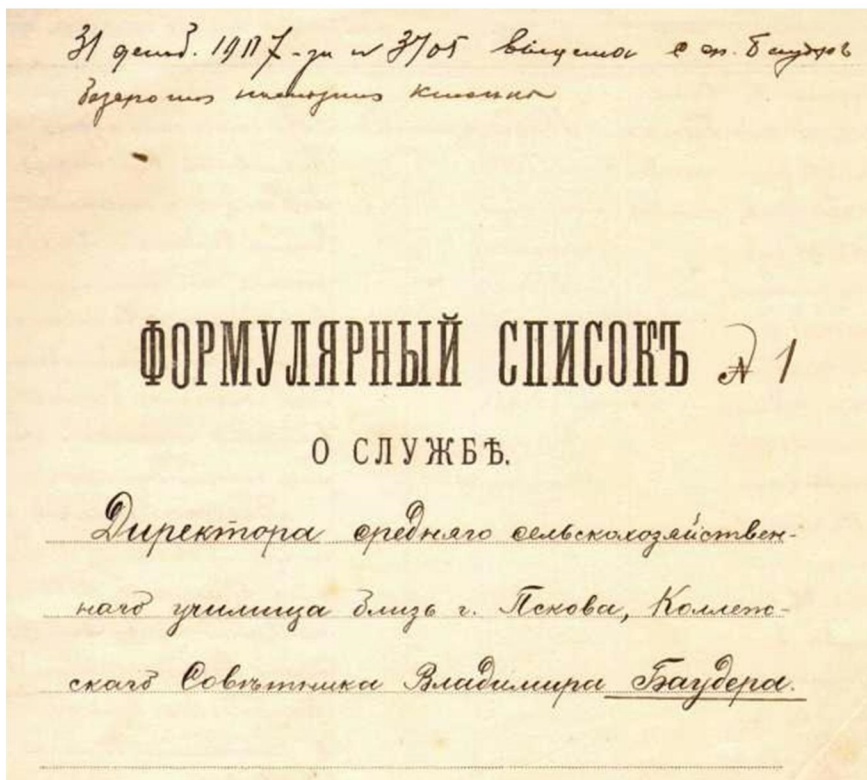 31 декб. 1917-за № 3705
ФОРМУЛЯРНЫЙ СПИСОКЪ № 1
О СЛУЖБѢ.
Директора средняго сельскохозяйствен-
наго училища близь г. Пскова, Коллеж-
скаго Совѣтника Владимира Баудера.